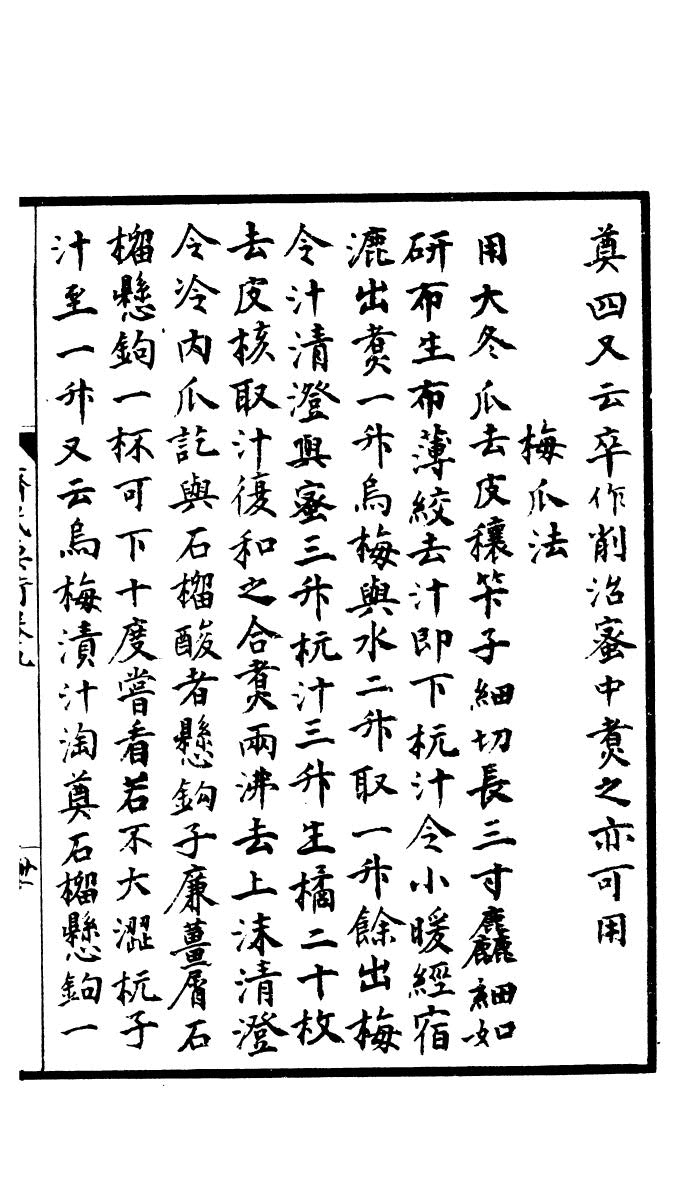 奠四又云卒作削治蜜中煑之亦可用
梅瓜法
用大冬瓜去皮穰竿子細切長三寸麤細如
研布生布薄絞去汁即下杬汁令小暖經宿
漉出煑一升烏梅與水二升取一升餘出梅
令汁清澄與蜜三升杬汁三升生橘二十枚
去皮核取汁復和之合煑兩沸去上沫清澄
令冷内瓜訖與石榴酸者懸鈎子廉薑屑石
榴懸鉤一杯可下十度嘗看若不大澀杬子
汁至一升又云烏梅漬汁淘奠石榴懸鉤一